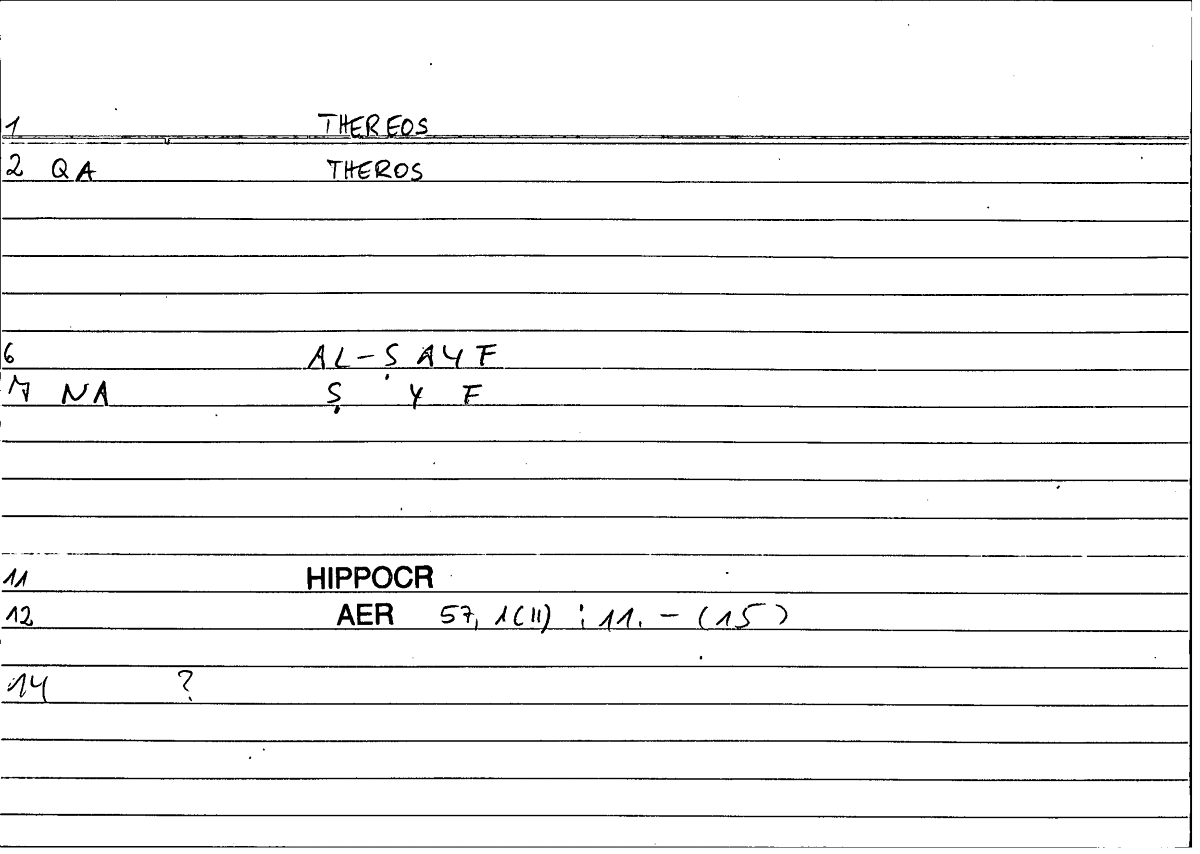 1 THEREOS
2 QA THEROS
6 AL-SAYF
7 NA Ṣ Y F
11 HIPPOCR
12 AER 57, 1(11) : 11. - (15)
14 ?